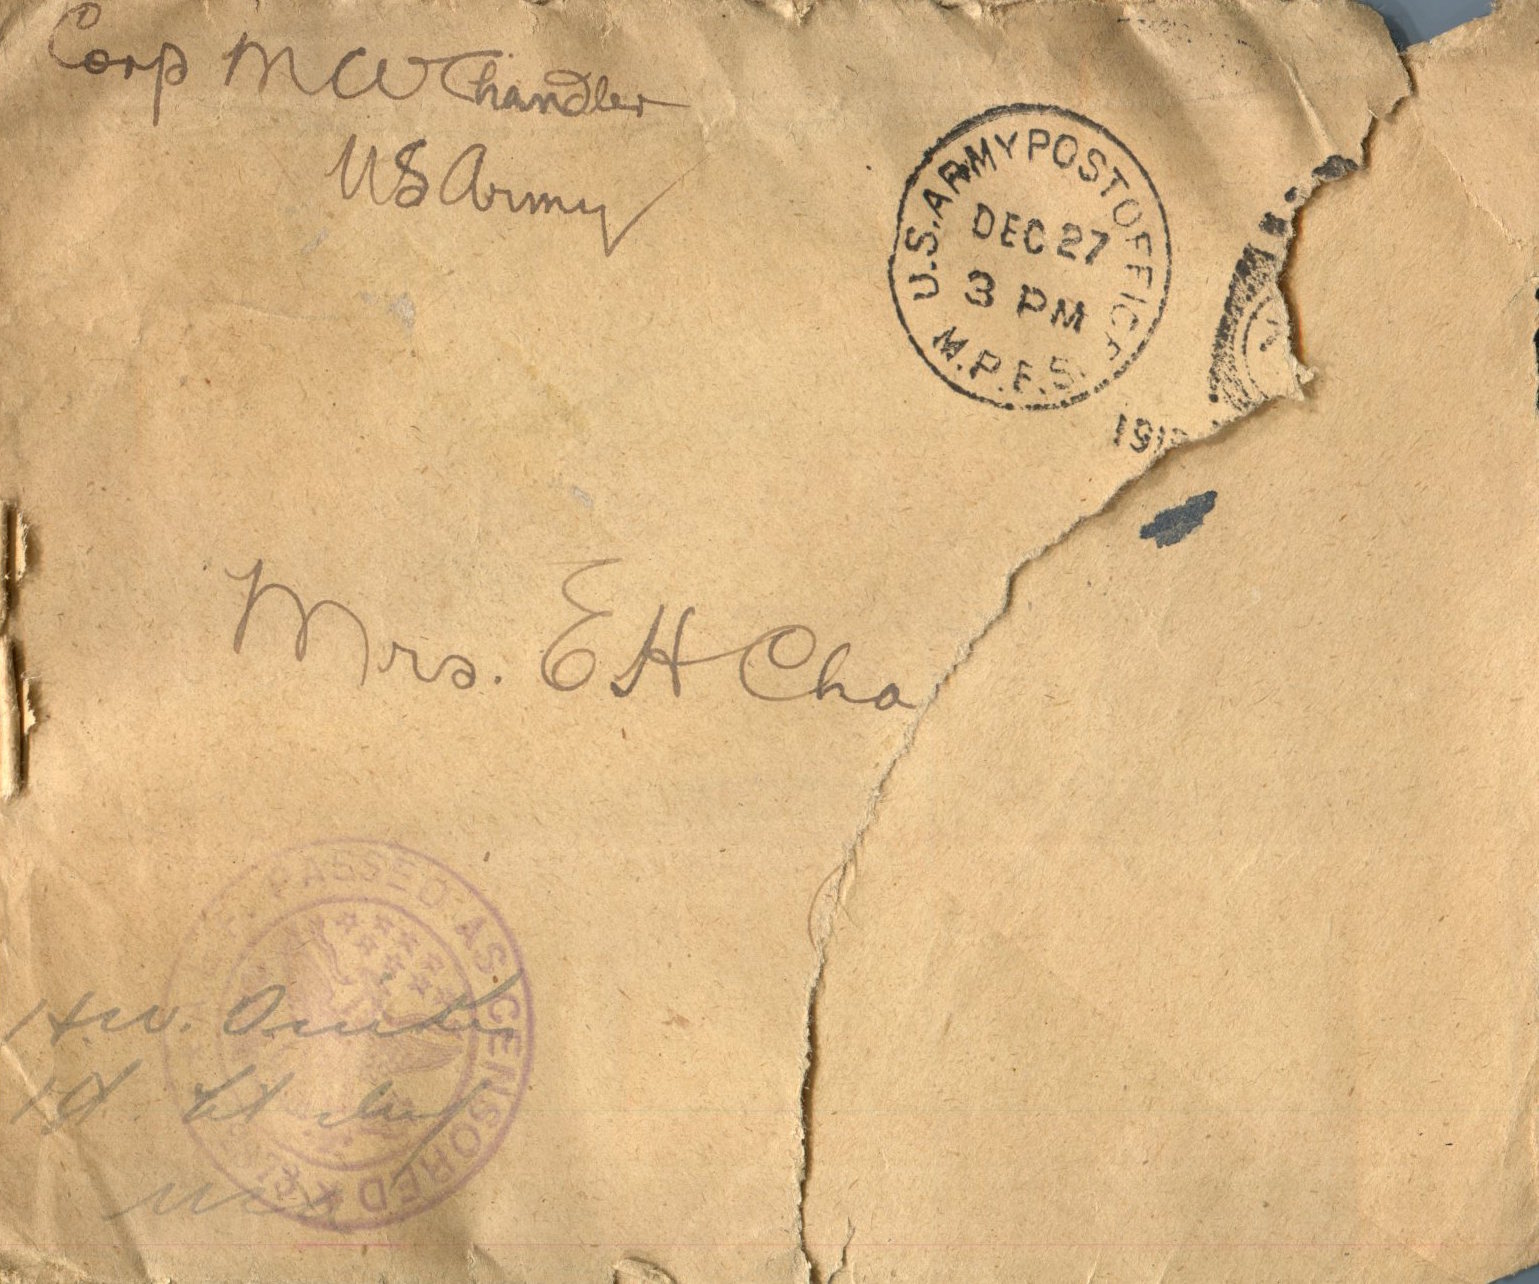 Corp M W Chandler
US Army
U.S. ARMY POST OFFICE
DEC 27
3 PM
M.P.E.S.
191
Mrs. E H Cha
PASSED AS CENSORED
H.W.
1st Lt Inf